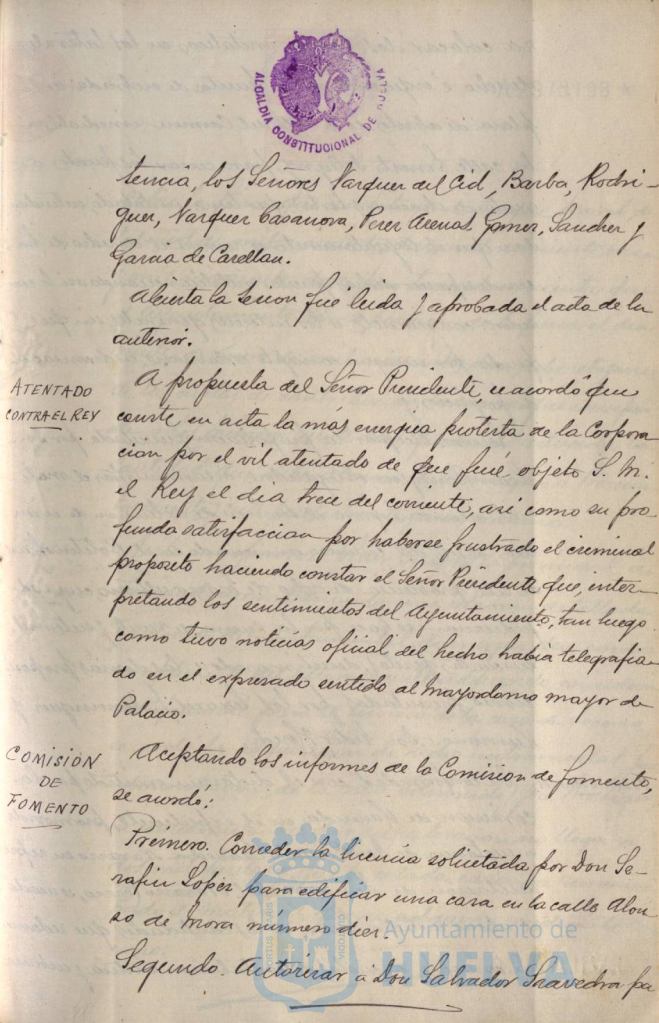 ALCALDIA CONSTITUCIONAL DE HUELVA
tencia, los Señores Vazquez del Cid, Barba, Rodri-
guez, Vazquez Casanova, Perez Arenas, Gomez, Sanchez y
Garcia de Castellan.
Abierta la sesion fué leida y aprobada el acta de la
anterior.
ATENTADO
CONTRA EL REY
A propuesta del Señor Presidente, se acordó que
conste en acta la más energica protesta de la Corpora
cion por el vil atentado de que fué objeto S. M.
el Rey el dia trece del corriente, asi como su pro
funda satisfaccion por haberse frustrado el criminal
proposito haciendo constar el Señor Presidente que, inter-
pretando los sentimientos del Ayuntamiento, tan luego
como tuvo noticias oficial del hecho habia telegrafia-
do en el expresado sentido al Mayordomo mayor de
Palacio.
COMISIÓN
DE
FOMENTO
Aceptando los informes de la Comision de fomento,
se acordó:
Primero. Conceder la licencia solicitada por Don Se-
rafin Lopez para edificar una casa en la calle Alon
so de Mora número diez.
Segundo. Autorizar á Don Salvador Saavedra pa
Ayuntamiento de
HUELVA